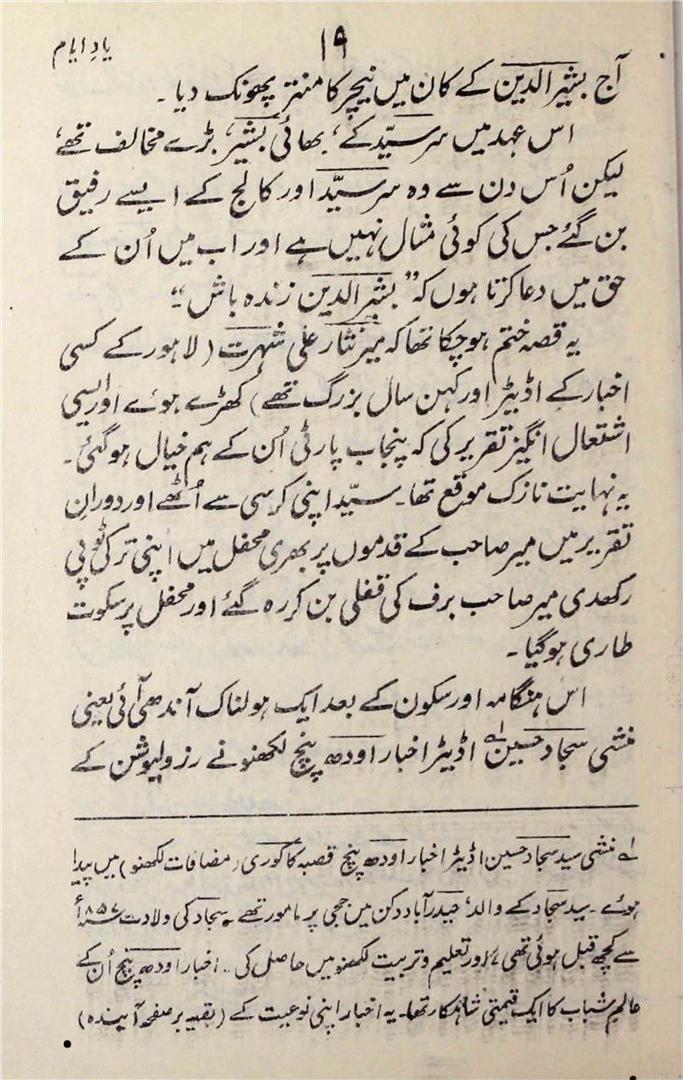 یادِ ایام
۱۹
آج بشیر الدین کے کان میں نیچر کا منتر پھونک دیا۔
اس عہد میں سر سیّد کے، بھائی بشیر، بڑے مخالف تھے،
لیکن اُس دن سے وہ سر سیّد اور کالج کے ایسے رفیق
بن گئے جس کی کوئی مثال نہیں ہے اور اب میں اُن کے
حق میں دعا کرتا ہوں کہ "بشیر الدین زندہ باش"۔
یہ قصہ ختم ہو چکا تھا کہ میر نثار علی شہرت (لاہور کے کسی
اخبار کے اڈیٹر اور کہن سال بزرگ تھے) کھڑے ہوئے اور ایسی
اشتعال انگیز تقریر کی کہ پنجاب پارٹی اُن کے ہم خیال ہو گئی۔
یہ نہایت نازک موقع تھا۔ سیّد اپنی کرسی سے اُٹھے اور دورانِ
تقریر میں میر صاحب کے قدموں پر بھری محفل میں اپنی ترکی ٹوپی
رکھدی میر صاحب برف کی قفلی بن کر رہ گئے اور محفل پر سکوت
طاری ہو گیا۔
اس ہنگامہ اور سکون کے بعد ایک ہولناک آندھی آئی یعنی
منشی سجاد حسین ؂۱ اڈیٹر اخبار اودھ پنچ لکھنو نے رزولیوشن کے
؂۱ منشی سید سجاد حسین اڈیٹر اخبار اودھ پنچ قصبہ کاکوری (مضافات لکھنو) میں پیدا
ہوئے۔ سید سجاد کے والد، حیدرآباد دکن میں ججی پر مامور تھے۔ سجاد کی ولادت ۱۸۵۷ء
سے کچھ قبل ہوئی تھی، اور تعلیم و تربیت لکھنو میں حاصل کی۔۔ اخبار اودھ پنچ اُن کے
عالمِ شباب کا ایک قیمتی شاہکار تھا۔ یہ اخبار اپنی نوعیت کے (بقیہ بر صفحہ آیندہ)